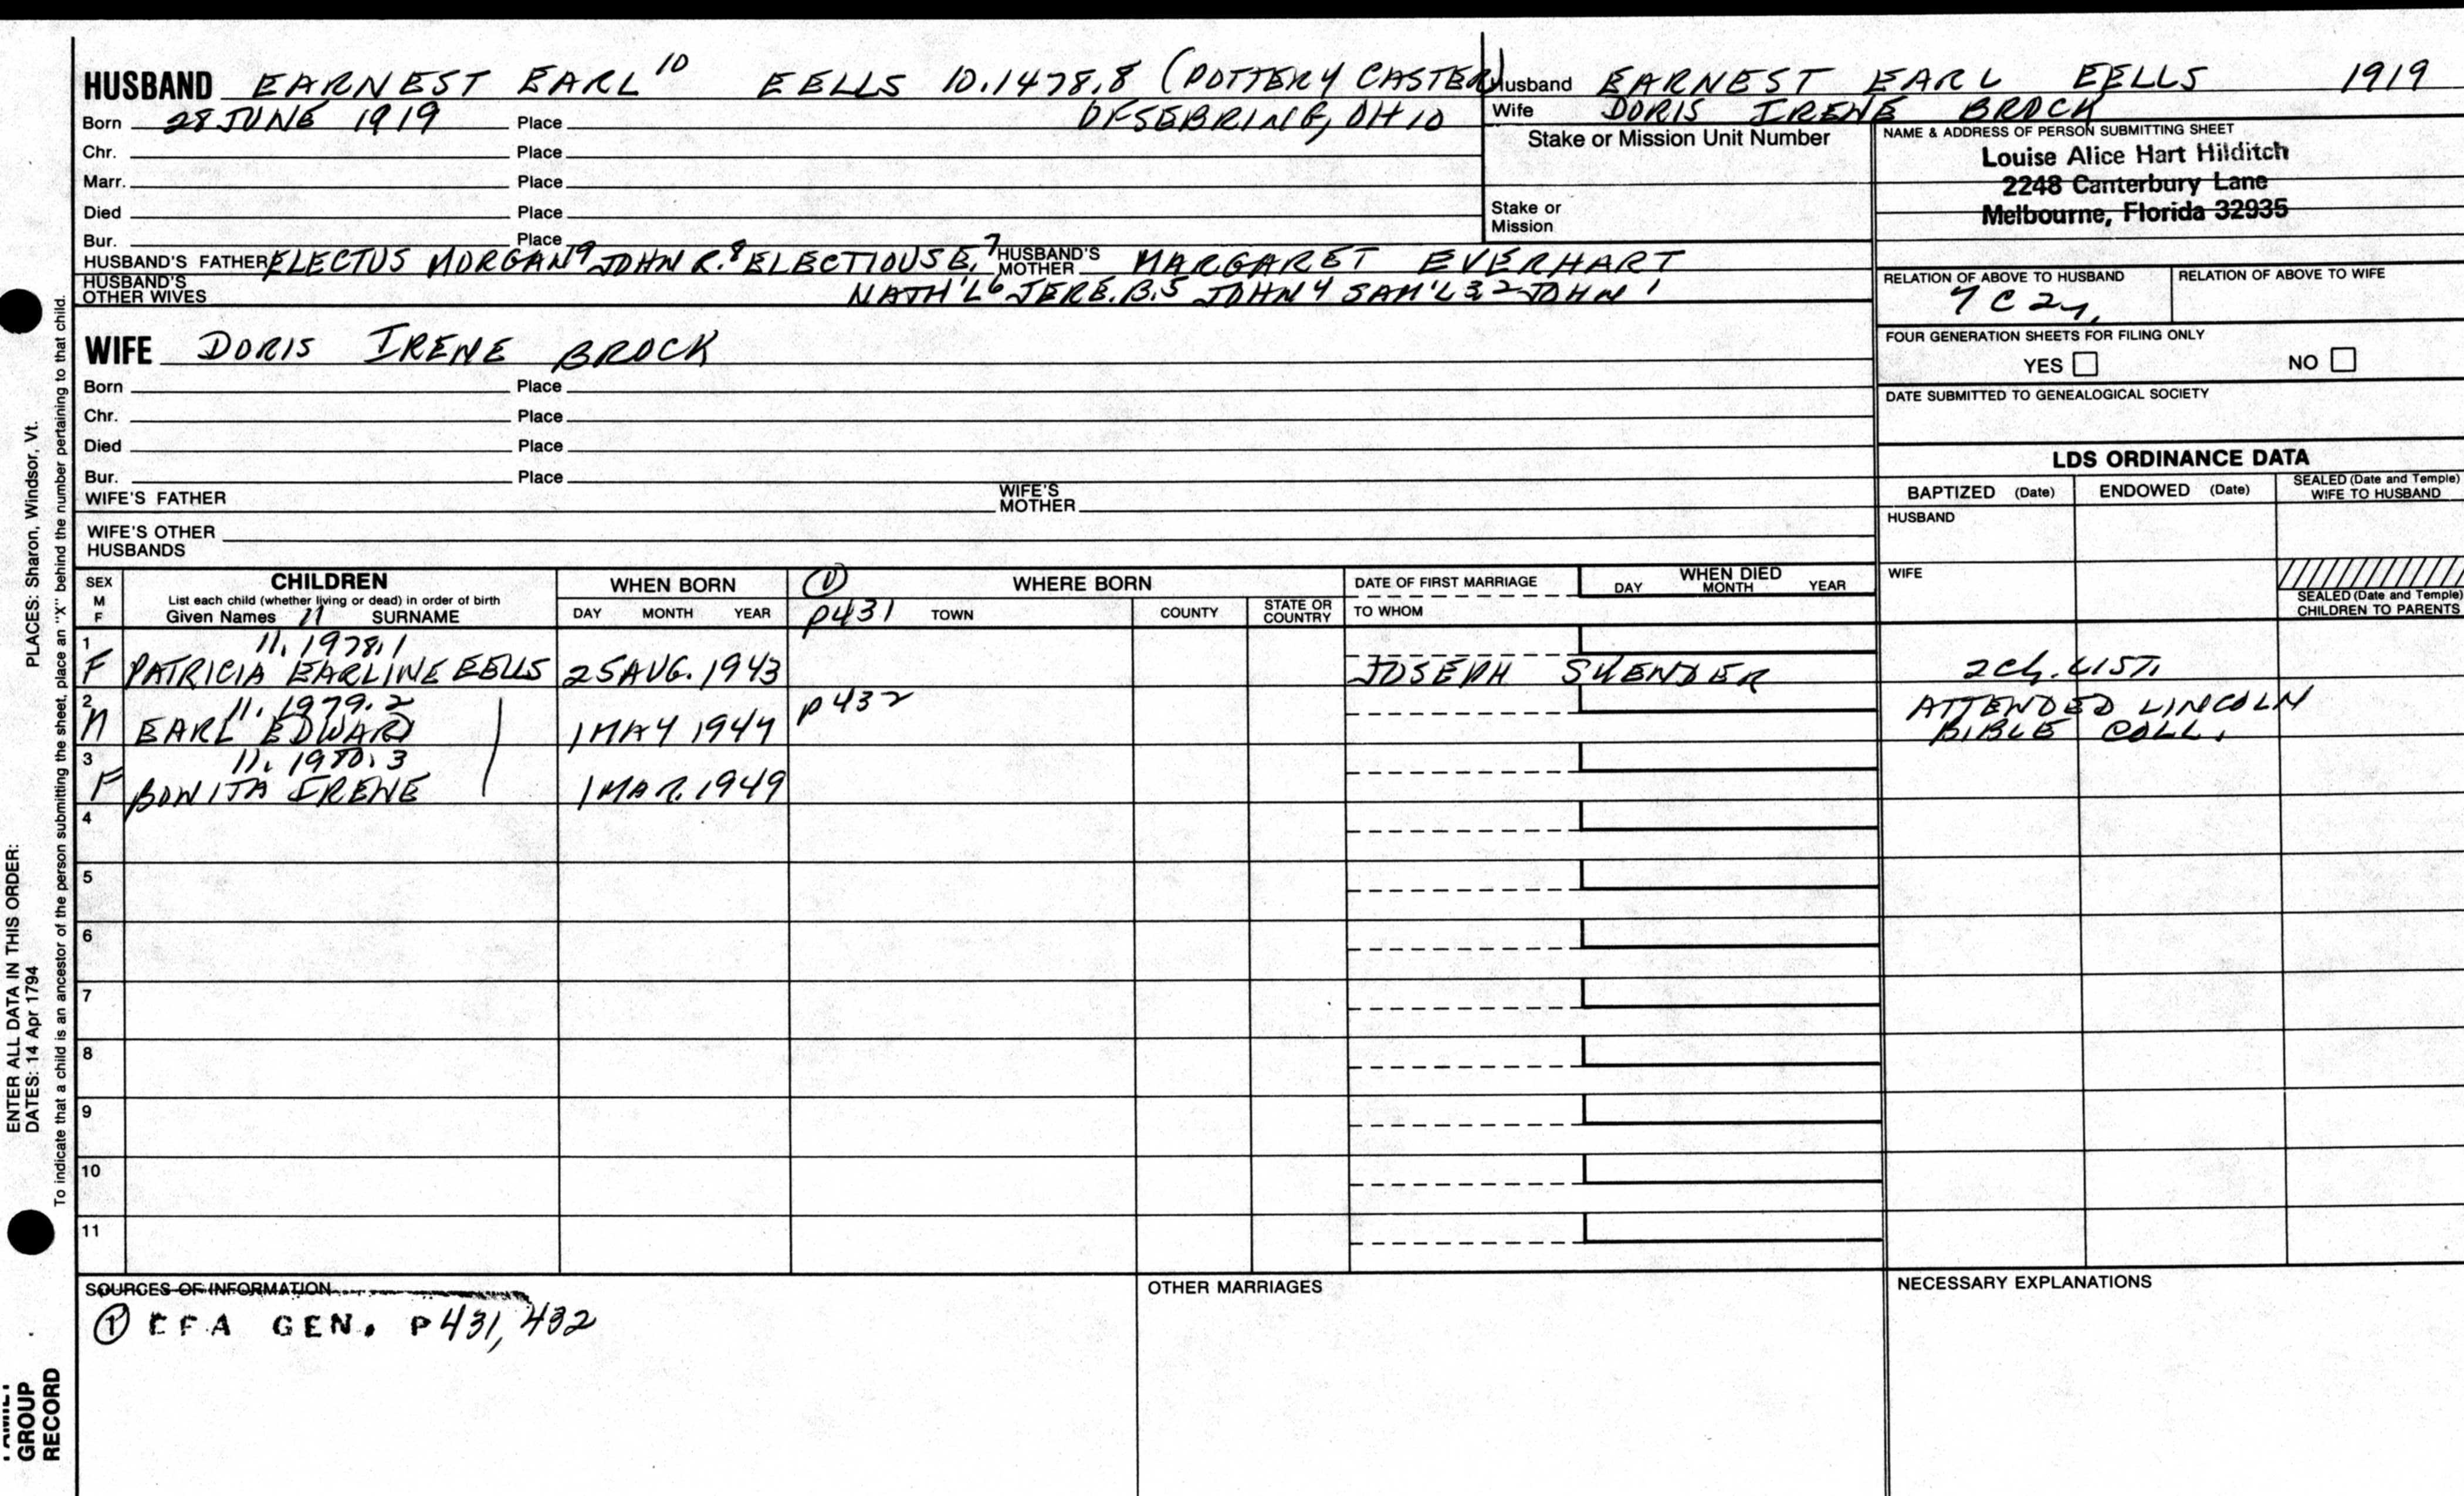 HUSBAND EARNEST EARL 10 EELLS 10.1478.8 (POTTERY CASTER)
Born 28 JUNE 1919 Place OF SEBRING, OHIO
Chr. Place
Marr. Place
Died Place
Bur. Place
HUSBAND'S FATHER ELECTUS MORGAN 9 JOHN R. 8 ELECTIOUS E. 7 HUSBAND'S MOTHER MARGARET EVERHART
HUSBAND'S OTHER WIVES NATH'L 6 JERE. B. 5 JOHN 4 SAM'L 3, 2 JOHN 1
WIFE DORIS IRENE BROCK
Born Place
Chr. Place
Died Place
Bur. Place
WIFE'S FATHER WIFE'S MOTHER
WIFE'S OTHER HUSBANDS
Husband EARNEST EARL EELLS 1919
Wife DORIS IRENE BROCK
Stake or Mission Unit Number
Stake or Mission
NAME & ADDRESS OF PERSON SUBMITTING SHEET
Louise Alice Hart Hilditch
2248 Canterbury Lane
Melbourne, Florida 32935
RELATION OF ABOVE TO HUSBAND RELATION OF ABOVE TO WIFE
7C2r.
FOUR GENERATION SHEETS FOR FILING ONLY
YES NO
DATE SUBMITTED TO GENEALOGICAL SOCIETY
LDS ORDINANCE DATA
BAPTIZED (Date) ENDOWED (Date) SEALED (Date and Temple) WIFE TO HUSBAND
HUSBAND
WIFE
SEALED (Date and Temple) CHILDREN TO PARENTS
SEX M F
CHILDREN
List each child (whether living or dead) in order of birth
Given Names 11 SURNAME
WHEN BORN
DAY MONTH YEAR
① WHERE BORN
P431 TOWN COUNTY STATE OR COUNTRY
DATE OF FIRST MARRIAGE
TO WHOM
WHEN DIED
DAY MONTH YEAR
1 11.1978.1
F PATRICIA EARLINE EELLS 25 AUG. 1943 JOSEPH 2ch. LIST.
2 11.1979.2 P432 ATTENDED LINCOLN
M EARL EDWARD 1 MAY 1947 BIBLE COLL.
3 11.1980.3
F BONITA IRENE 1 MAR. 1949
4
5
6
7
8
9
10
11
SOURCES OF INFORMATION
① EFA GEN. P431, 432
OTHER MARRIAGES
NECESSARY EXPLANATIONS
PLACES: Sharon, Windsor, Vt.
ENTER ALL DATA IN THIS ORDER:
DATES: 14 Apr 1794
To indicate that a child is an ancestor of the person submitting the sheet, place an "X" behind the number pertaining to that child.
FAMILY
GROUP
RECORD